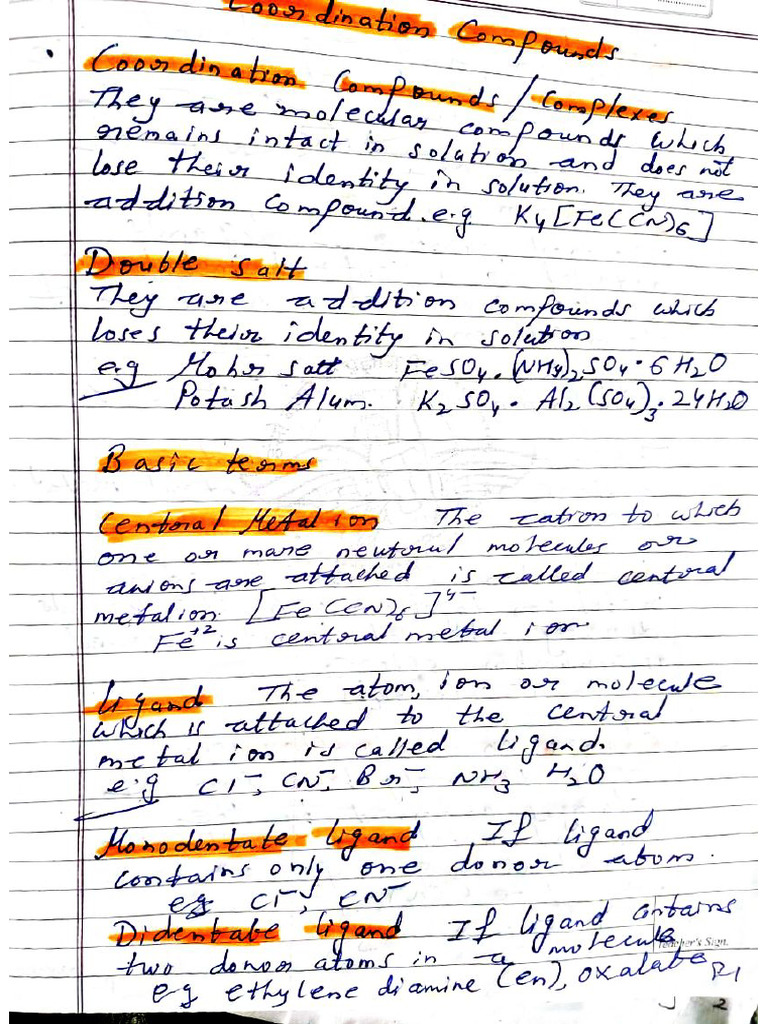 Coordination Compounds
Coordination Compounds/Complexes
They are molecular compounds which
remains intact in solution and does not
lose their identity in solution. They are
addition compound. e.g K4[Fe(CN)6]
Double salt
They are addition compounds which
loses their identity in solution
e.g Mohr salt FeSO4.(NH4)2SO4.6H2O
Potash Alum. K2SO4. Al2(SO4)3.24H2O
Basic terms
Central Metal ion The cation to which
one or more neutral molecules or
anions are attached is called central
metal ion. [Fe(CN)6]4-
Fe+2 is central metal ion
Ligand The atom, ion or molecule
which is attached to the central
metal ion is called ligand.
e.g Cl-, CN-, Br-, NH3 H2O
Monodentate ligand If ligand
contains only one donor atom.
eg Cl-, CN-
Didentate ligand If ligand contains
two donor atoms in a molecule
Teacher's Sign.
eg ethylene diamine (en), oxalate
2